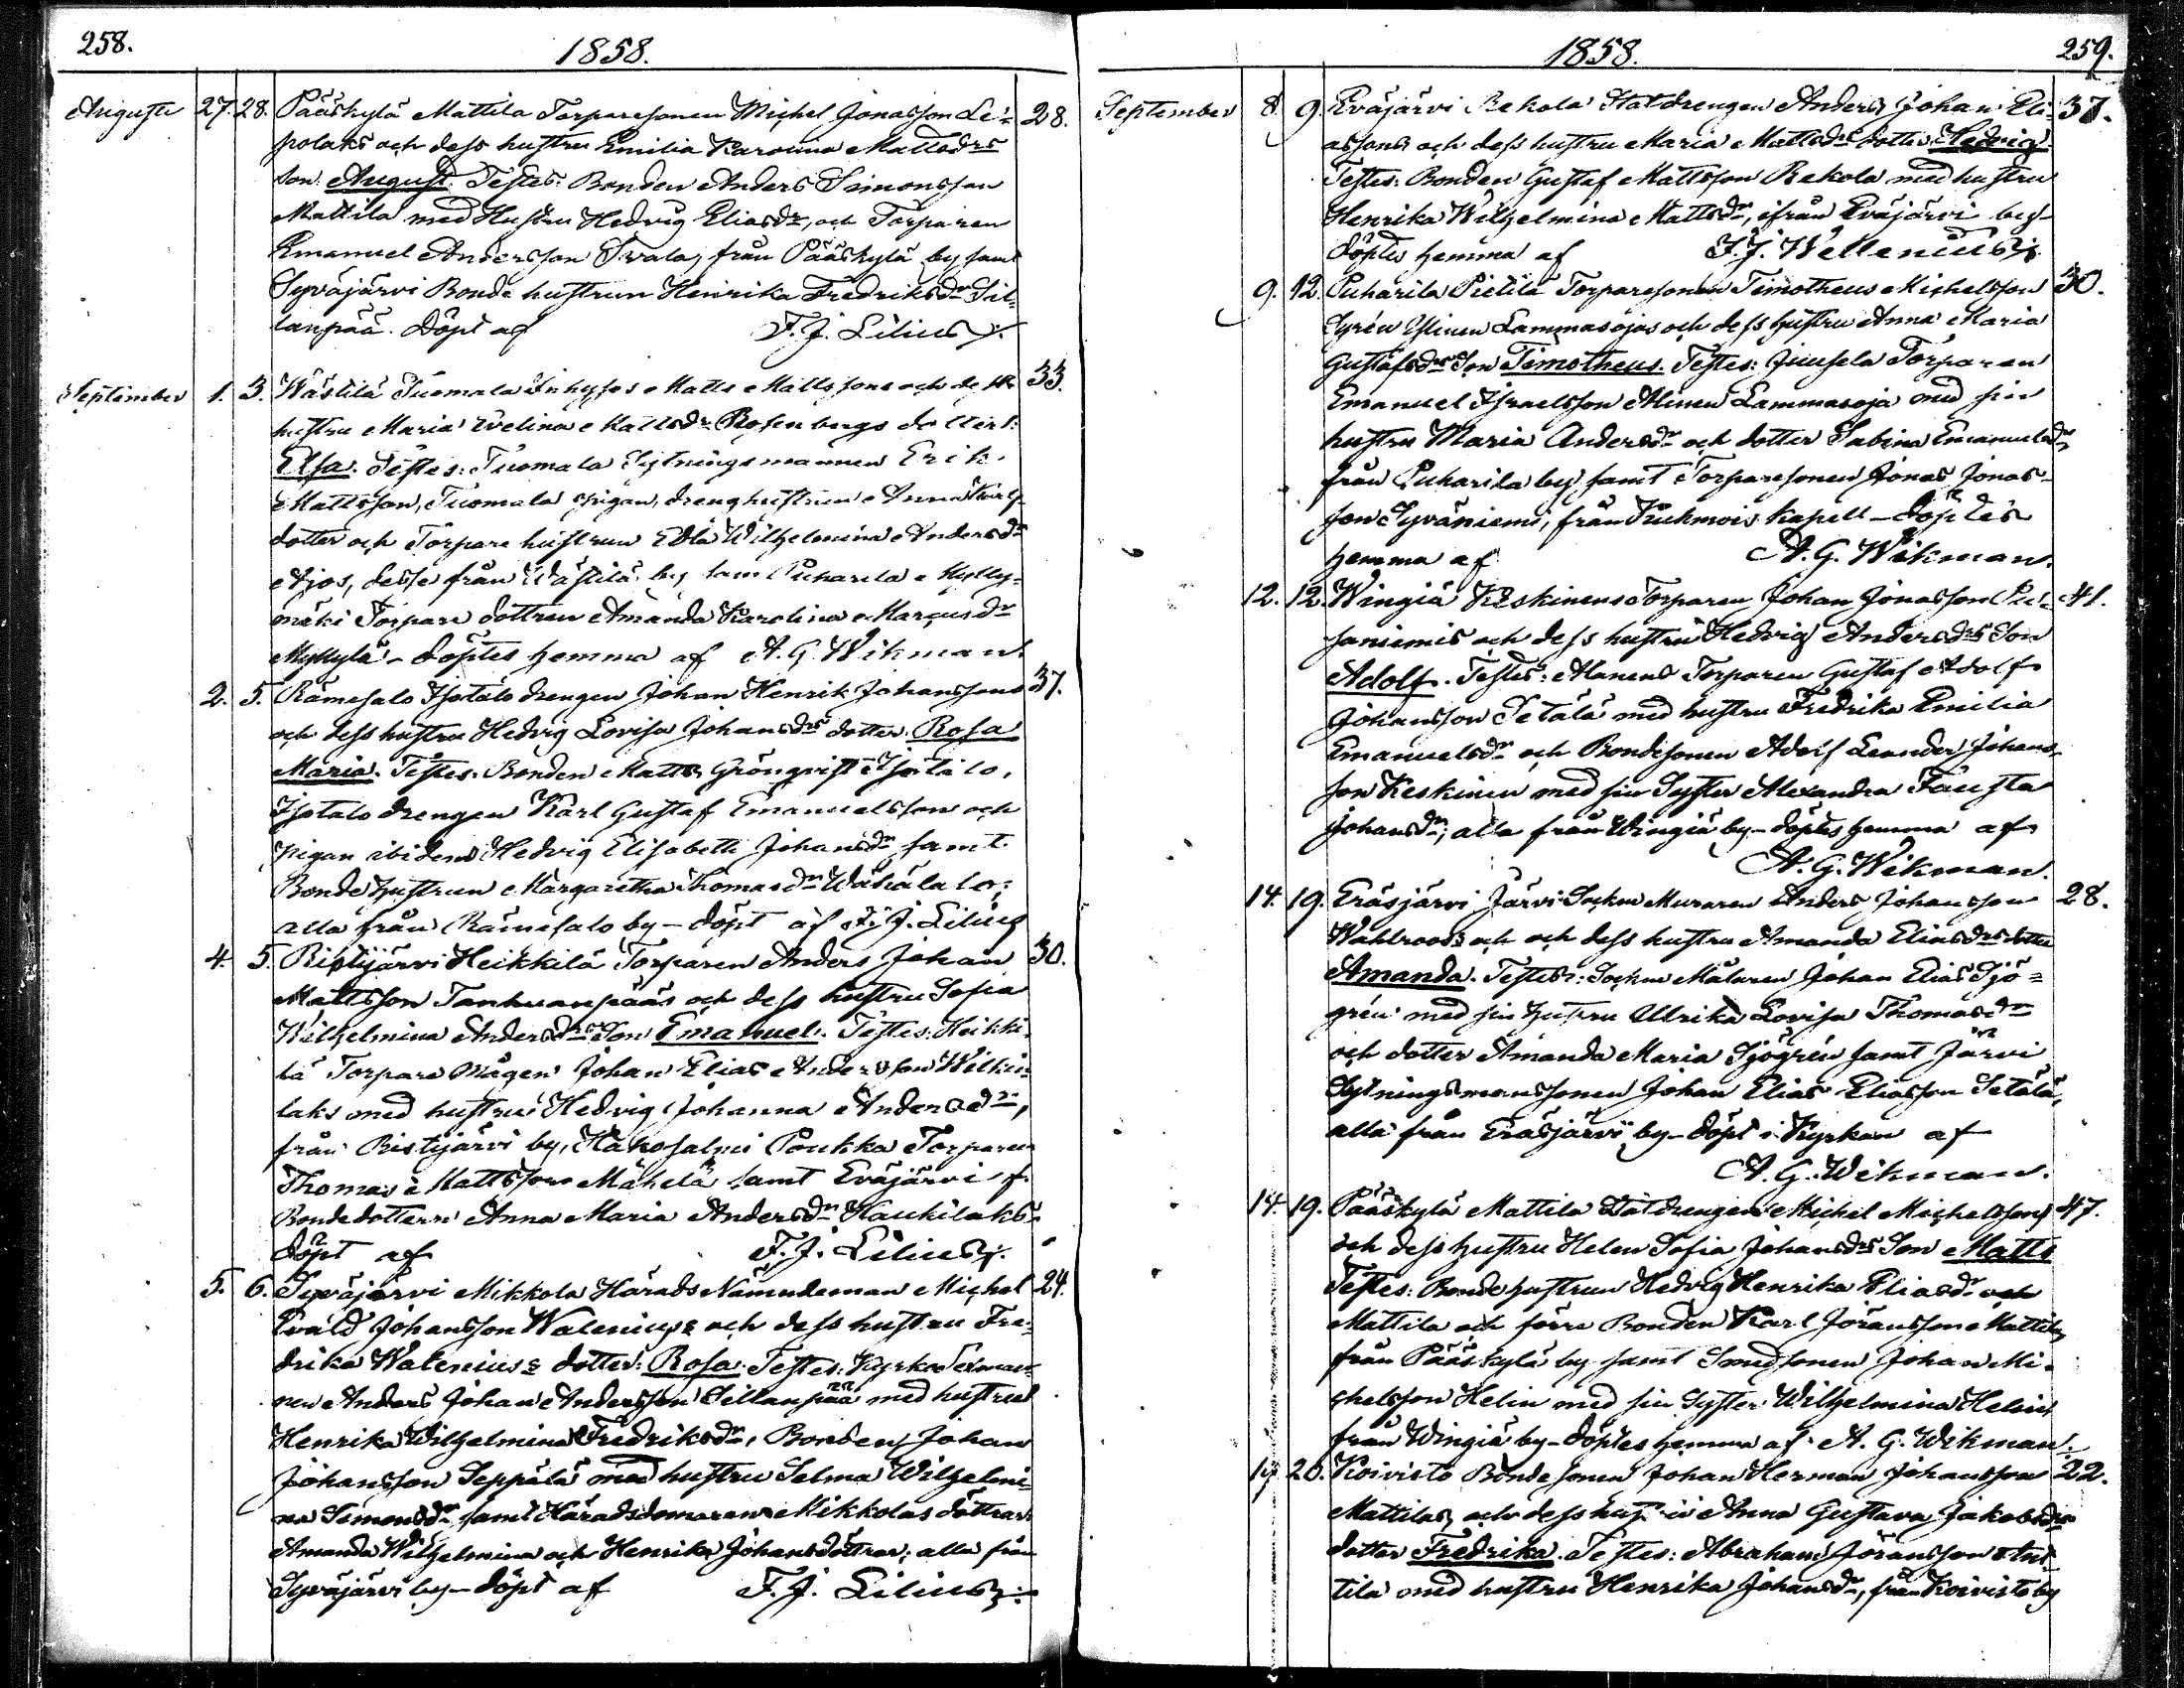 258.
1858.
Augusti 27. 28. Pääskylä Mattila Torparesonen Michel Jonasson Le= 28.
polaks och dess hustru Emilia Karolina Mattsdrs
son August. Testes: Bonden Anders Simonsson
Mattila med Hustru Hedvig Eliasdr, och Torparen
Emanuel Andersson Svala, från Pääskylä by samt
Syväjärvi Bonde hustrun Henrika Fredriksdr Sil=
lanpää. Döpt af F. J. Lilius.
September 1. 3. Wästilä Tuomala Inhyses Matts Mattssons och dess 33.
hustru Maria Evelina Mattsdr Rosenbergs dotter:
Elsa. Testes: Tuomala Sytningsmannen Erik
Mattsson, Tuomala pigan, drenghustrun Anna Karls
dotter och Torpare hustrun Edla Wilhelmina Andersdr
Ajos, desse från Wästilä by samt Puharila Mylly=
mäki Torpare dottren Amanda Karolina Marcusdr
Myllylä - döptes hemma af A. G. Wikman.
2. 5. Rämesalo Isotalo drengen Johan Henrik Johanssons 37.
och dess hustru Hedvig Lovisa Johansdrs dotter Rosa
Maria. Testes: Bonden Matts Grönqvist Isotalo,
Isotalo drengen Karl Gustaf Emanuelsson och
pigan ibidem Hedvig Elisabeth Johansdr samt
Bondehustrun Margaretha Thomasdr Wähälalo;
alla från Rämesalo by - döpt af F. J. Lilius
4. 5. Ristijärvi Heikkilä Torparen Anders Johan 30.
Mattsson Tanhuanpääs och dess hustru Sofia
Wilhelmina Andersdrs Son Emanuel. Testes: Heikki=
lä Torpare Mågen Johan Elias Andersson Wilki=
laks med hustru Hedvig Johanna Andersdr,
från Ristijärvi by, Hakosalmi Poukka Torparen
Thomas Mattsson Mäkelä samt Eväjärvi
Bondedottern Anna Maria Andersdr Haukilaks
döpt af F. J. Lilius.
5. 6. Syväjärvi Mikkola Härads Nämndeman Michel 24.
Evald Johansson Walenius och dess hustru Fre=
drika Walenius's dotter: Rosa. Testes: Kyrko Sexman=
nen Anders Johan Andersson Sillanpää med hustru
Henrika Wilhelmina Fredriksdr, Bonden Johan
Johansson Seppälä med hustru Selma Wilhelmi=
na Simonsdr samt Häradsdomaren Mikkolas döttrar
Amanda Wilhelmina och Henrika Johansdöttrar; alla från
Syväjärvi by - döpt af F. J. Lilius
1858.
259.
September 8. 9. Eväjärvi Rekola Statdrengen Anders Johan Eli= 37.
assons och dess hustru Maria Mattsdrs dotter Hedvig.
Testes: Bonden Gustaf Mattsson Rekola med hustru
Henrika Wilhelmina Mattsdr, ifrån Eväjärvi by
döptes hemma af F. J. Wellenius
9. 12. Puharila Pietilä Torparesonen Timotheus Michelsson 30.
Syrén Lammasojas och dess hustru Anna Maria
Gustafsdrs Son Timotheus. Testes: Juusela Torparen
Emanuel Israelsson Alinen Lammasoja med sin
hustru Maria Andersdr och dotter Sabina Emanuelsdr
från Puharila by samt Torparesonen Jonas Jonas=
son Syväniemi, från Kuhmois Kapell - döptes
hemma af A. G. Wikman.
12. 12. Wingiä Keskinens Torparen Johan Jonasson Pu= 41.
saniemis och dess hustru Hedvig Andersdrs Son
Adolf. Testes: Alanens Torparen Gustaf Adolf
Johansson Setälä med hustru Fredrika Emilia
Emanuelsdr och Bondesonen Adolf Leander Johans=
son Keskinen med sin Syster Alexandra Fausta
Johansdr; alla från Wingiä by - döptes hemma af
A. G. Wikman.
14. 19. Eräsjärvi Järvi Sockne Muraren Anders Johansson 28.
Wahlroos's och och dess hustru Amanda Eliasdrs dotter
Amanda. Testes: Sockne Målaren Johan Elias Sjö=
grén med sin hustru Ulrika Lovisa Thomasdr
och dotter Amanda Maria Sjögrén samt Järvi
Sytningsmanssonen Johan Elias Eliasson Setälä,
alla från Eräsjärvi by - döpt i Kyrkan af
A. G. Wikman.
14. 19. Pääskylä Mattila Statdrengen Michel Michelssons 47.
och dess hustru Helen Sofia Johansdrs Son Matts
Testes: Bondehustrun Hedvig Henrika Eliasdr och
Mattila och förre Bonden Karl Jöransson Mattila,
från Pääskylä by samt Smedsonen Johan Mi=
chelsson Helin med sin Syster Wilhelmina Helin
från Wingiä by - döptes hemma af A. G. Wikman.
19. 20. Koivisto Bondesonen Johan Herman Johansson 22.
Mattilas och dess hustru Anna Gustava Jakobsdrs
dotter Fredrika. Testes: Abraham Jöransson Ant=
tila med hustru Henrika Johansdr, från Koivisto by